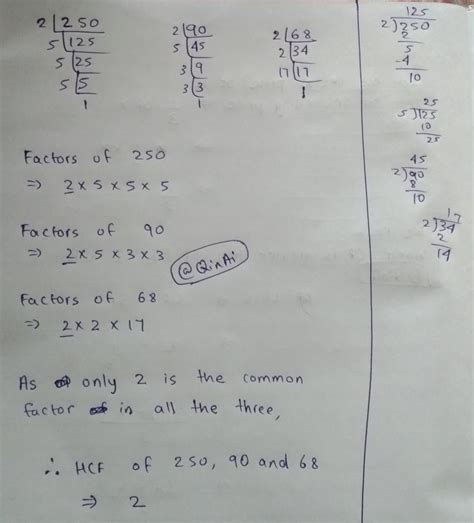 2 | 250
5 | 125
5 | 25
5 | 5
1
2 | 90
5 | 45
3 | 9
3 | 3
1
2 | 68
2 | 34
17 | 17
1
Factors of 250
⇒ 2 × 5 × 5 × 5
Factors of 90
⇒ 2 × 5 × 3 × 3
@QinAi
Factors of 68
⇒ 2 × 2 × 17
As only 2 is the common
factor in all the three,
∴ HCF of 250, 90 and 68
⇒ 2
125
2)250
2
5
-4
10
25
5)125
10
25
45
2)90
8
10
17
2)34
2
14